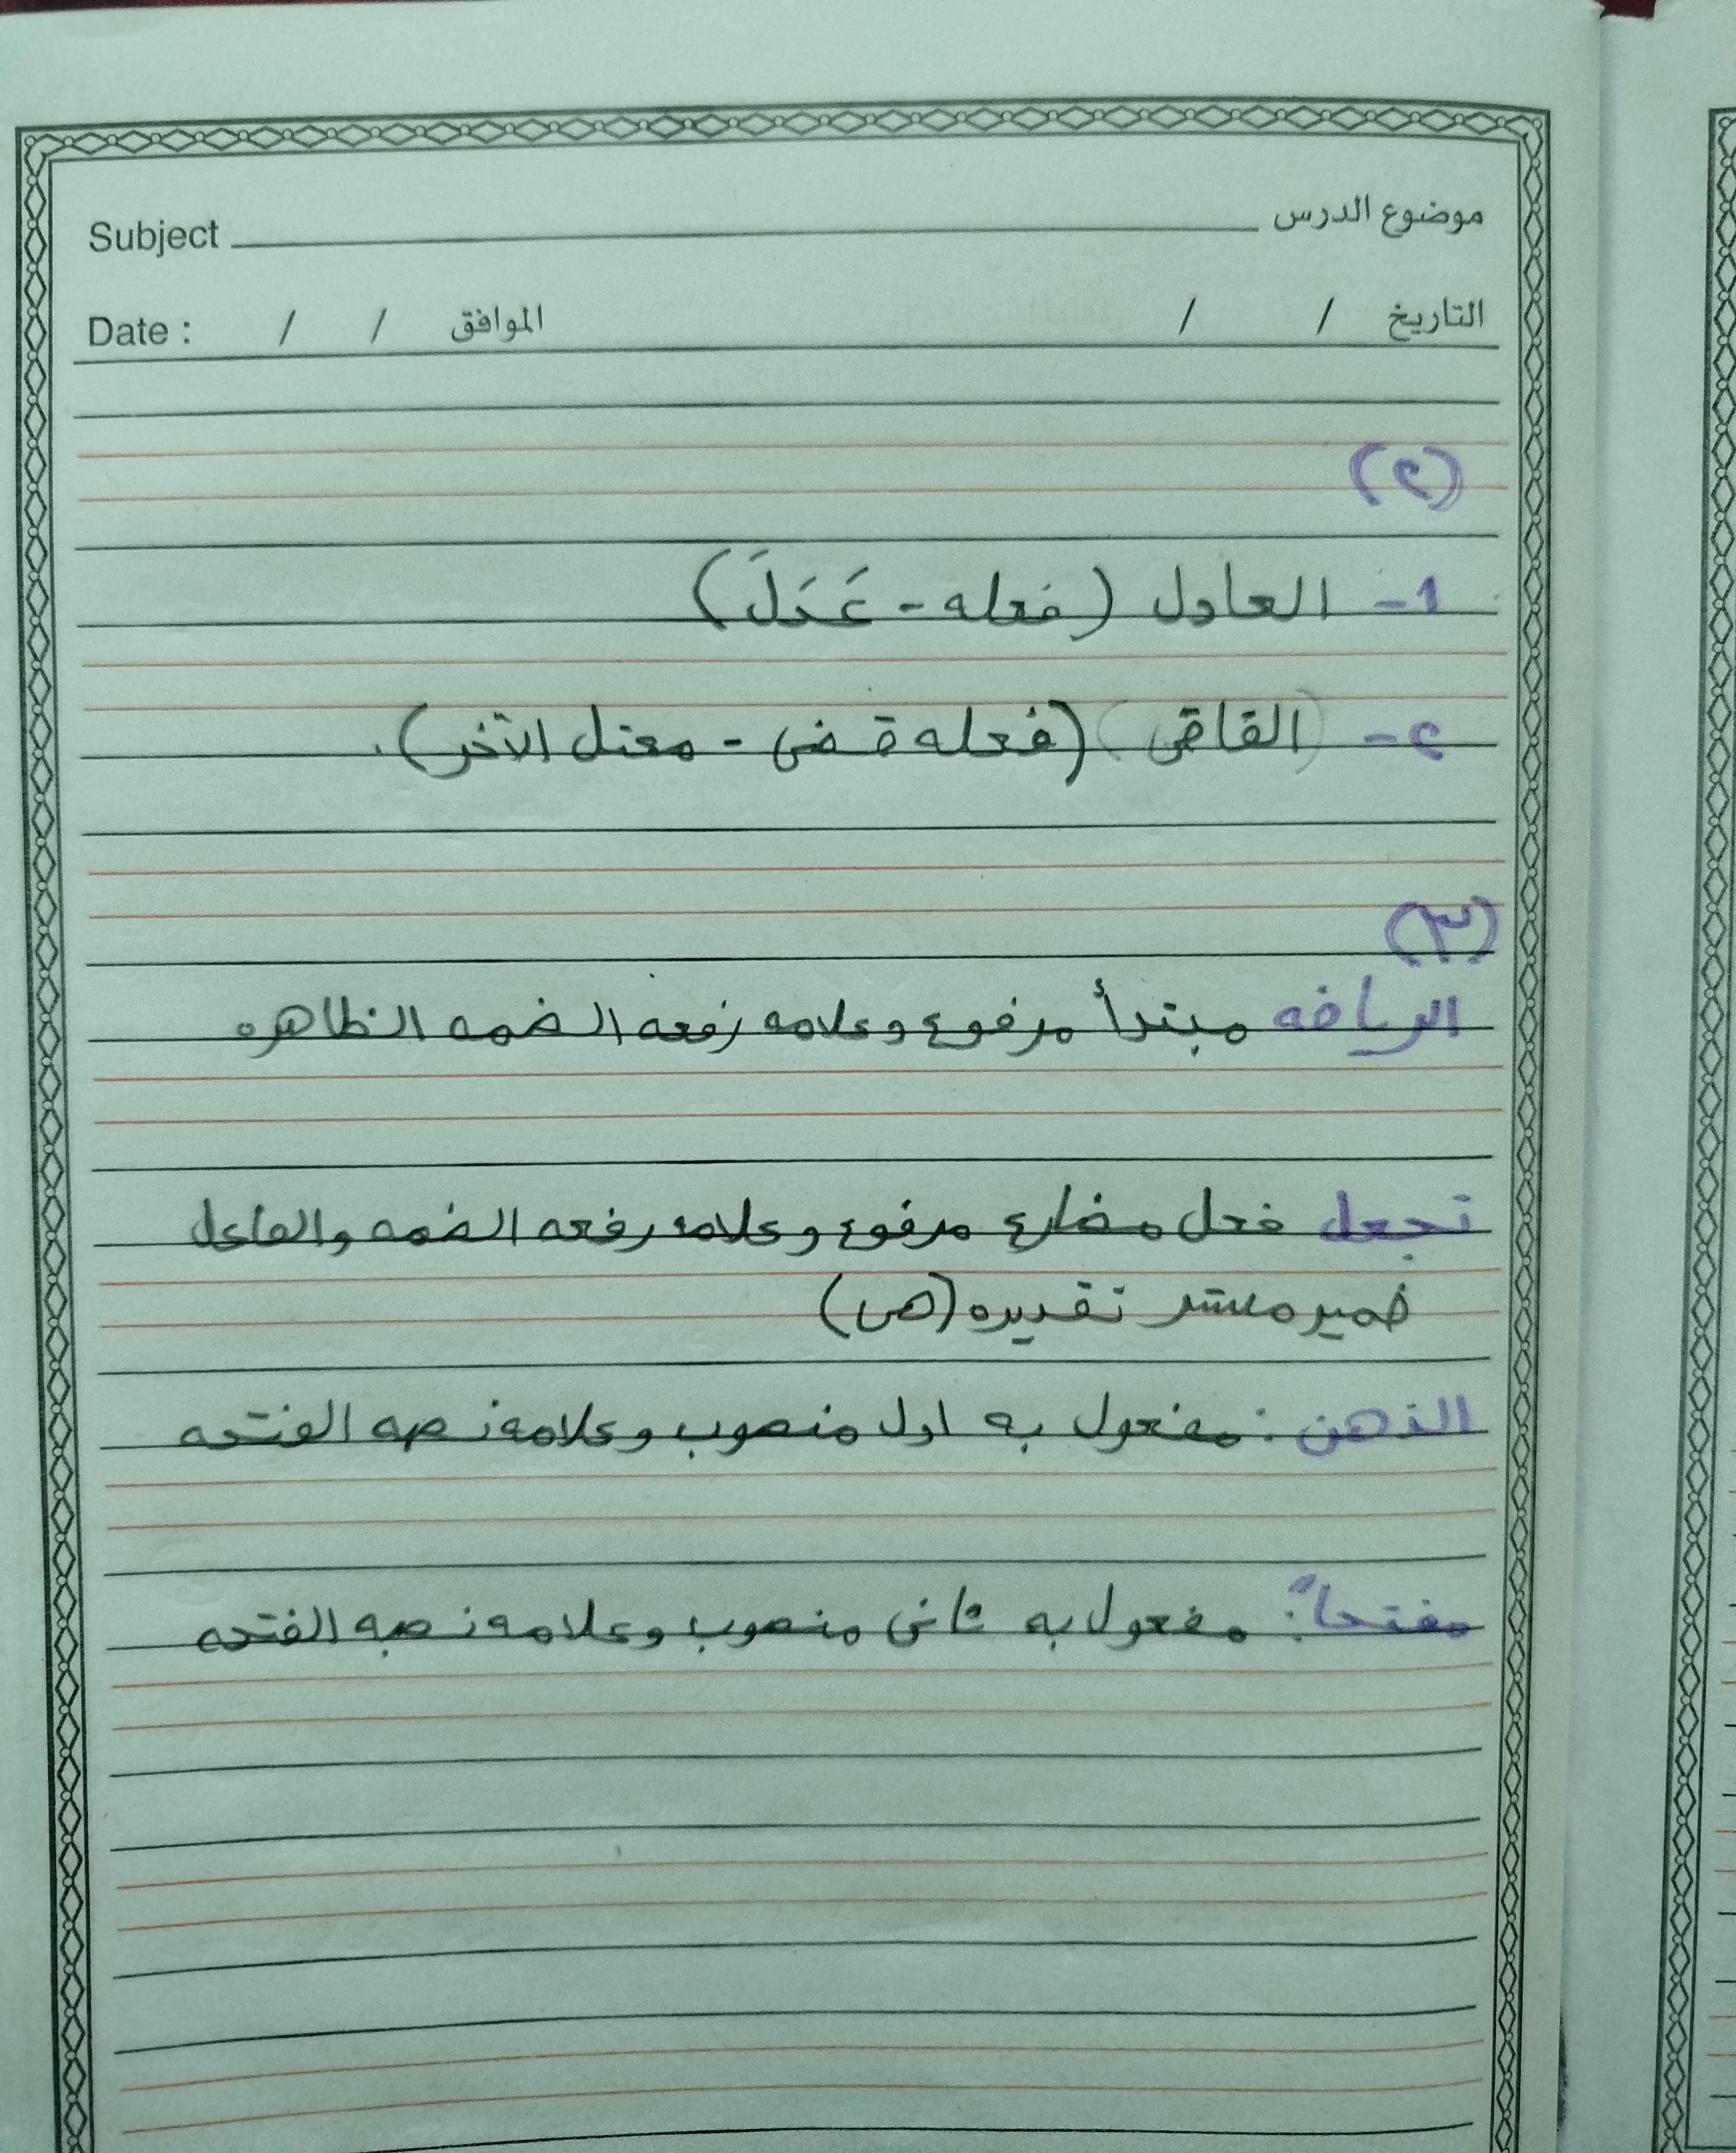 موضوع الدرس Subject
التاريخ / / الموافق / / Date :
(٢)
1- العادل (فعله - عَدَلَ)
٢- (القاضى) (فعله قضى - معتل الآخر).
(٣)
الرياضه مبتدأ مرفوع وعلامه رفعه الضمه الظاهره
تجعل فعل مضارع مرفوع وعلامه رفعه الضمه والفاعل
ضمير مستتر تقديره (هى)
الذهن : مفعول به اول منصوب وعلامه نصبه الفتحه
مفتحاً : مفعول به ثانى منصوب وعلامه نصبه الفتحه